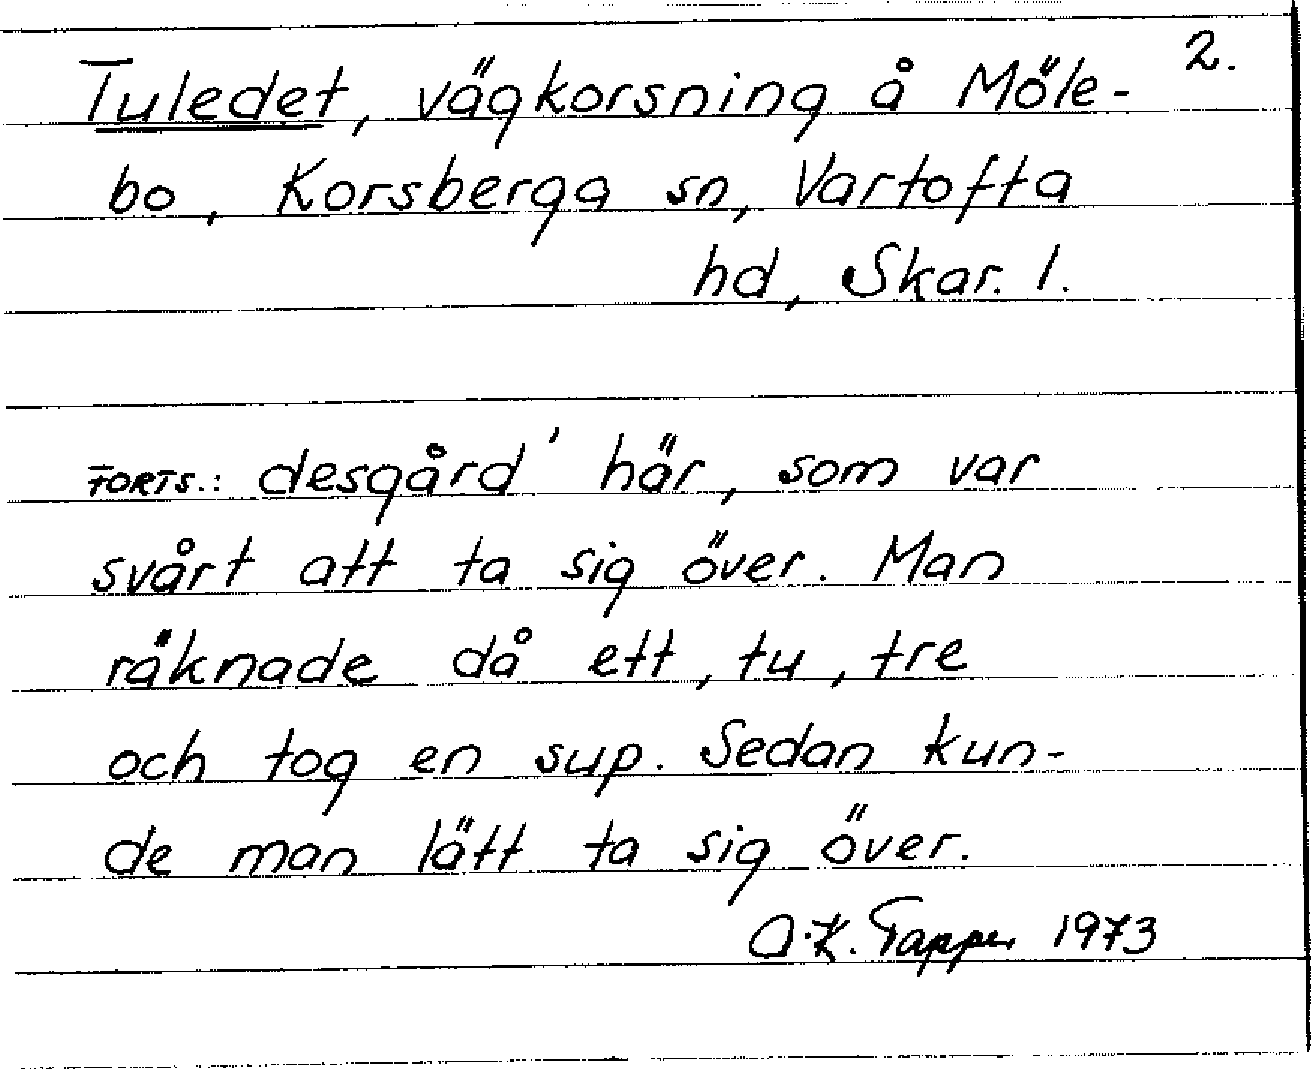 2.
Tuledet, vägkorsning å Möle-
bo, Korsberga sn, Vartofta
hd, Skar. l.
FORTS.: desgård' här, som var
svårt att ta sig över. Man
räknade då ett, tu, tre
och tog en sup. Sedan kun-
de man lätt ta sig över.
A.K. Tapper 1973